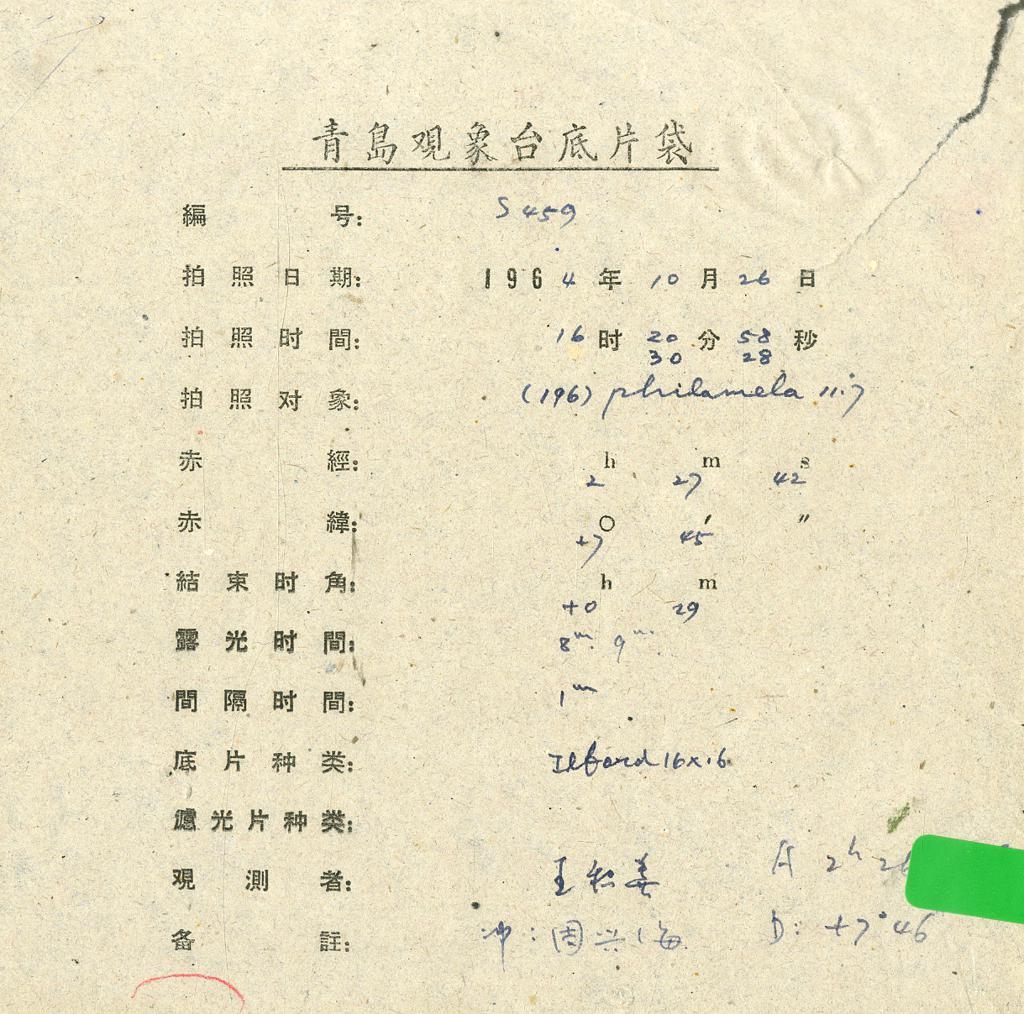 青島观象台底片袋
編号: S 459
拍照日期: 1964年10月26日
拍照时間: 16时20分58秒
30 28
拍照对象: (196) philamela 11.7
赤經: 2h 27m 42s
赤緯: +7° 45′ ″
結束时角: +0h 29m
露光时間: 8m. 9m.
間隔时間: 1m
底片种类: Ilford 16×16
濾光片种类:
观測者: 王 A 2h
备註: 冲: 周兴海 D: +7°46